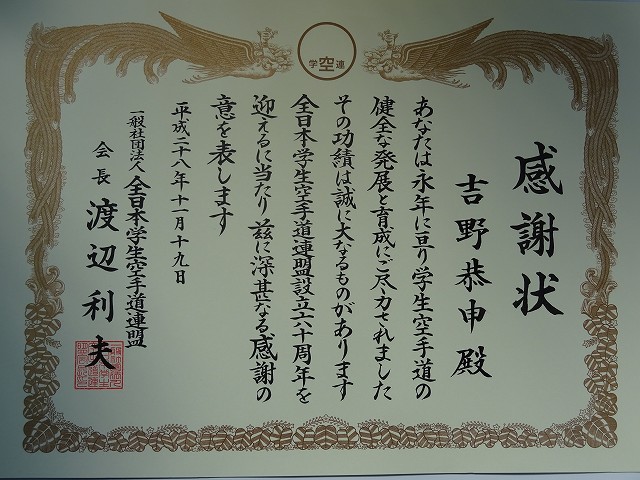 学空連
感謝状
吉野恭申殿
あなたは永年に亘り学生空手道の
健全な発展と育成にご尽力されました
その功績は誠に大なるものがあります
全日本学生空手道連盟設立六十周年を
迎えるに当たり茲に深甚なる感謝の
意を表します
平成二八年十一月十九日
一般社団法人全日本学生空手道連盟
会長渡辺利夫